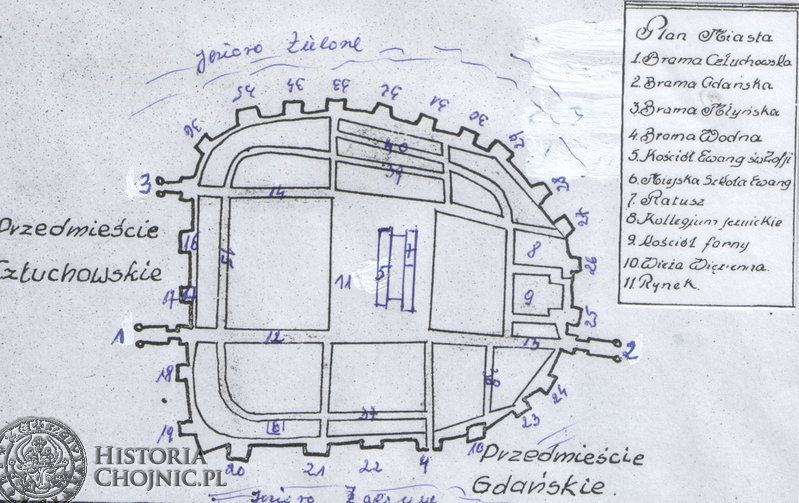 Jezioro Zielone
36
35
34
33
32
31
30
29
28
27
26
25
24
23
10
4
22
21
20
19
18
17
16
3
1
2
40
39
14
15
11
5
7
8
9
12
13
38
37
6
Przedmieście
Człuchowskie
Przedmieście
Gdańskie.
Jezioro
Plan Miasta
1. Brama Człuchowska
2. Brama Gdańska
3. Brama Młyńska
4. Broma Wodna
5. Kościół Ewang św Zofji
6. Miejska Szkoła Ewang
7. Ratusz
8. Kollegjum jezuickie
9. Kościół farny
10. Wieża Więzienna.
11. Rynek.
HISTORIA
CHOJNIC.PL